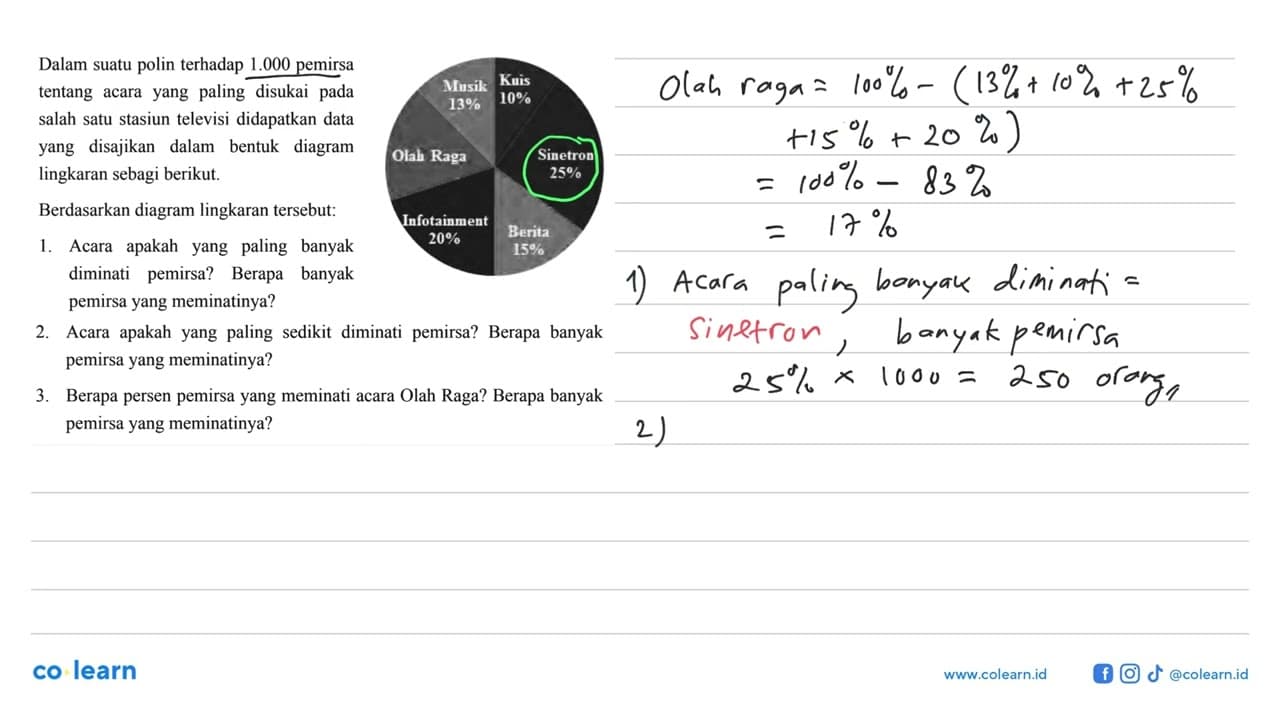 Dalam suatu polin terhadap 1.000 pemirsa
tentang acara yang paling disukai pada
salah satu stasiun televisi didapatkan data
yang disajikan dalam bentuk diagram
lingkaran sebagi berikut.
Berdasarkan diagram lingkaran tersebut:
1. Acara apakah yang paling banyak
diminati pemirsa? Berapa banyak
pemirsa yang meminatinya?
2. Acara apakah yang paling sedikit diminati pemirsa? Berapa banyak
pemirsa yang meminatinya?
3. Berapa persen pemirsa yang meminati acara Olah Raga? Berapa banyak
pemirsa yang meminatinya?
Musik
13%
Kuis
10%
Olah Raga
Sinetron
25%
Infotainment
20%
Berita
15%
Olah raga = 100% - (13% + 10% + 25%
+15% + 20%)
= 100% - 83%
= 17%
1) Acara paling banyak diminati =
Sinetron, banyak pemirsa
25% × 1000 = 250 orang,
2)
co learn
www.colearn.id
@colearn.id